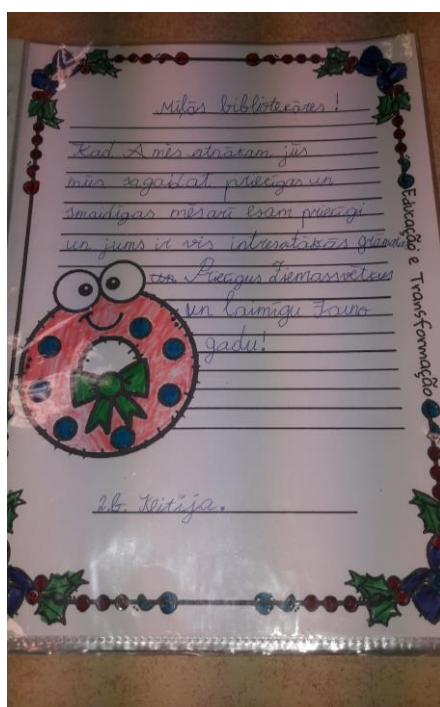 Miļās bibliotekāres!
Kad A mēs atnākam jūs
mūs sagaidat priecīgas un
smaidīgas mēs arī esam priecīgi
un jums ir vis intresatākās grāmatas
un Priecīgus Ziemassvetkus
un laimīgu Jauno
gadu!
2.b. Keitija.
Educação e Transformação